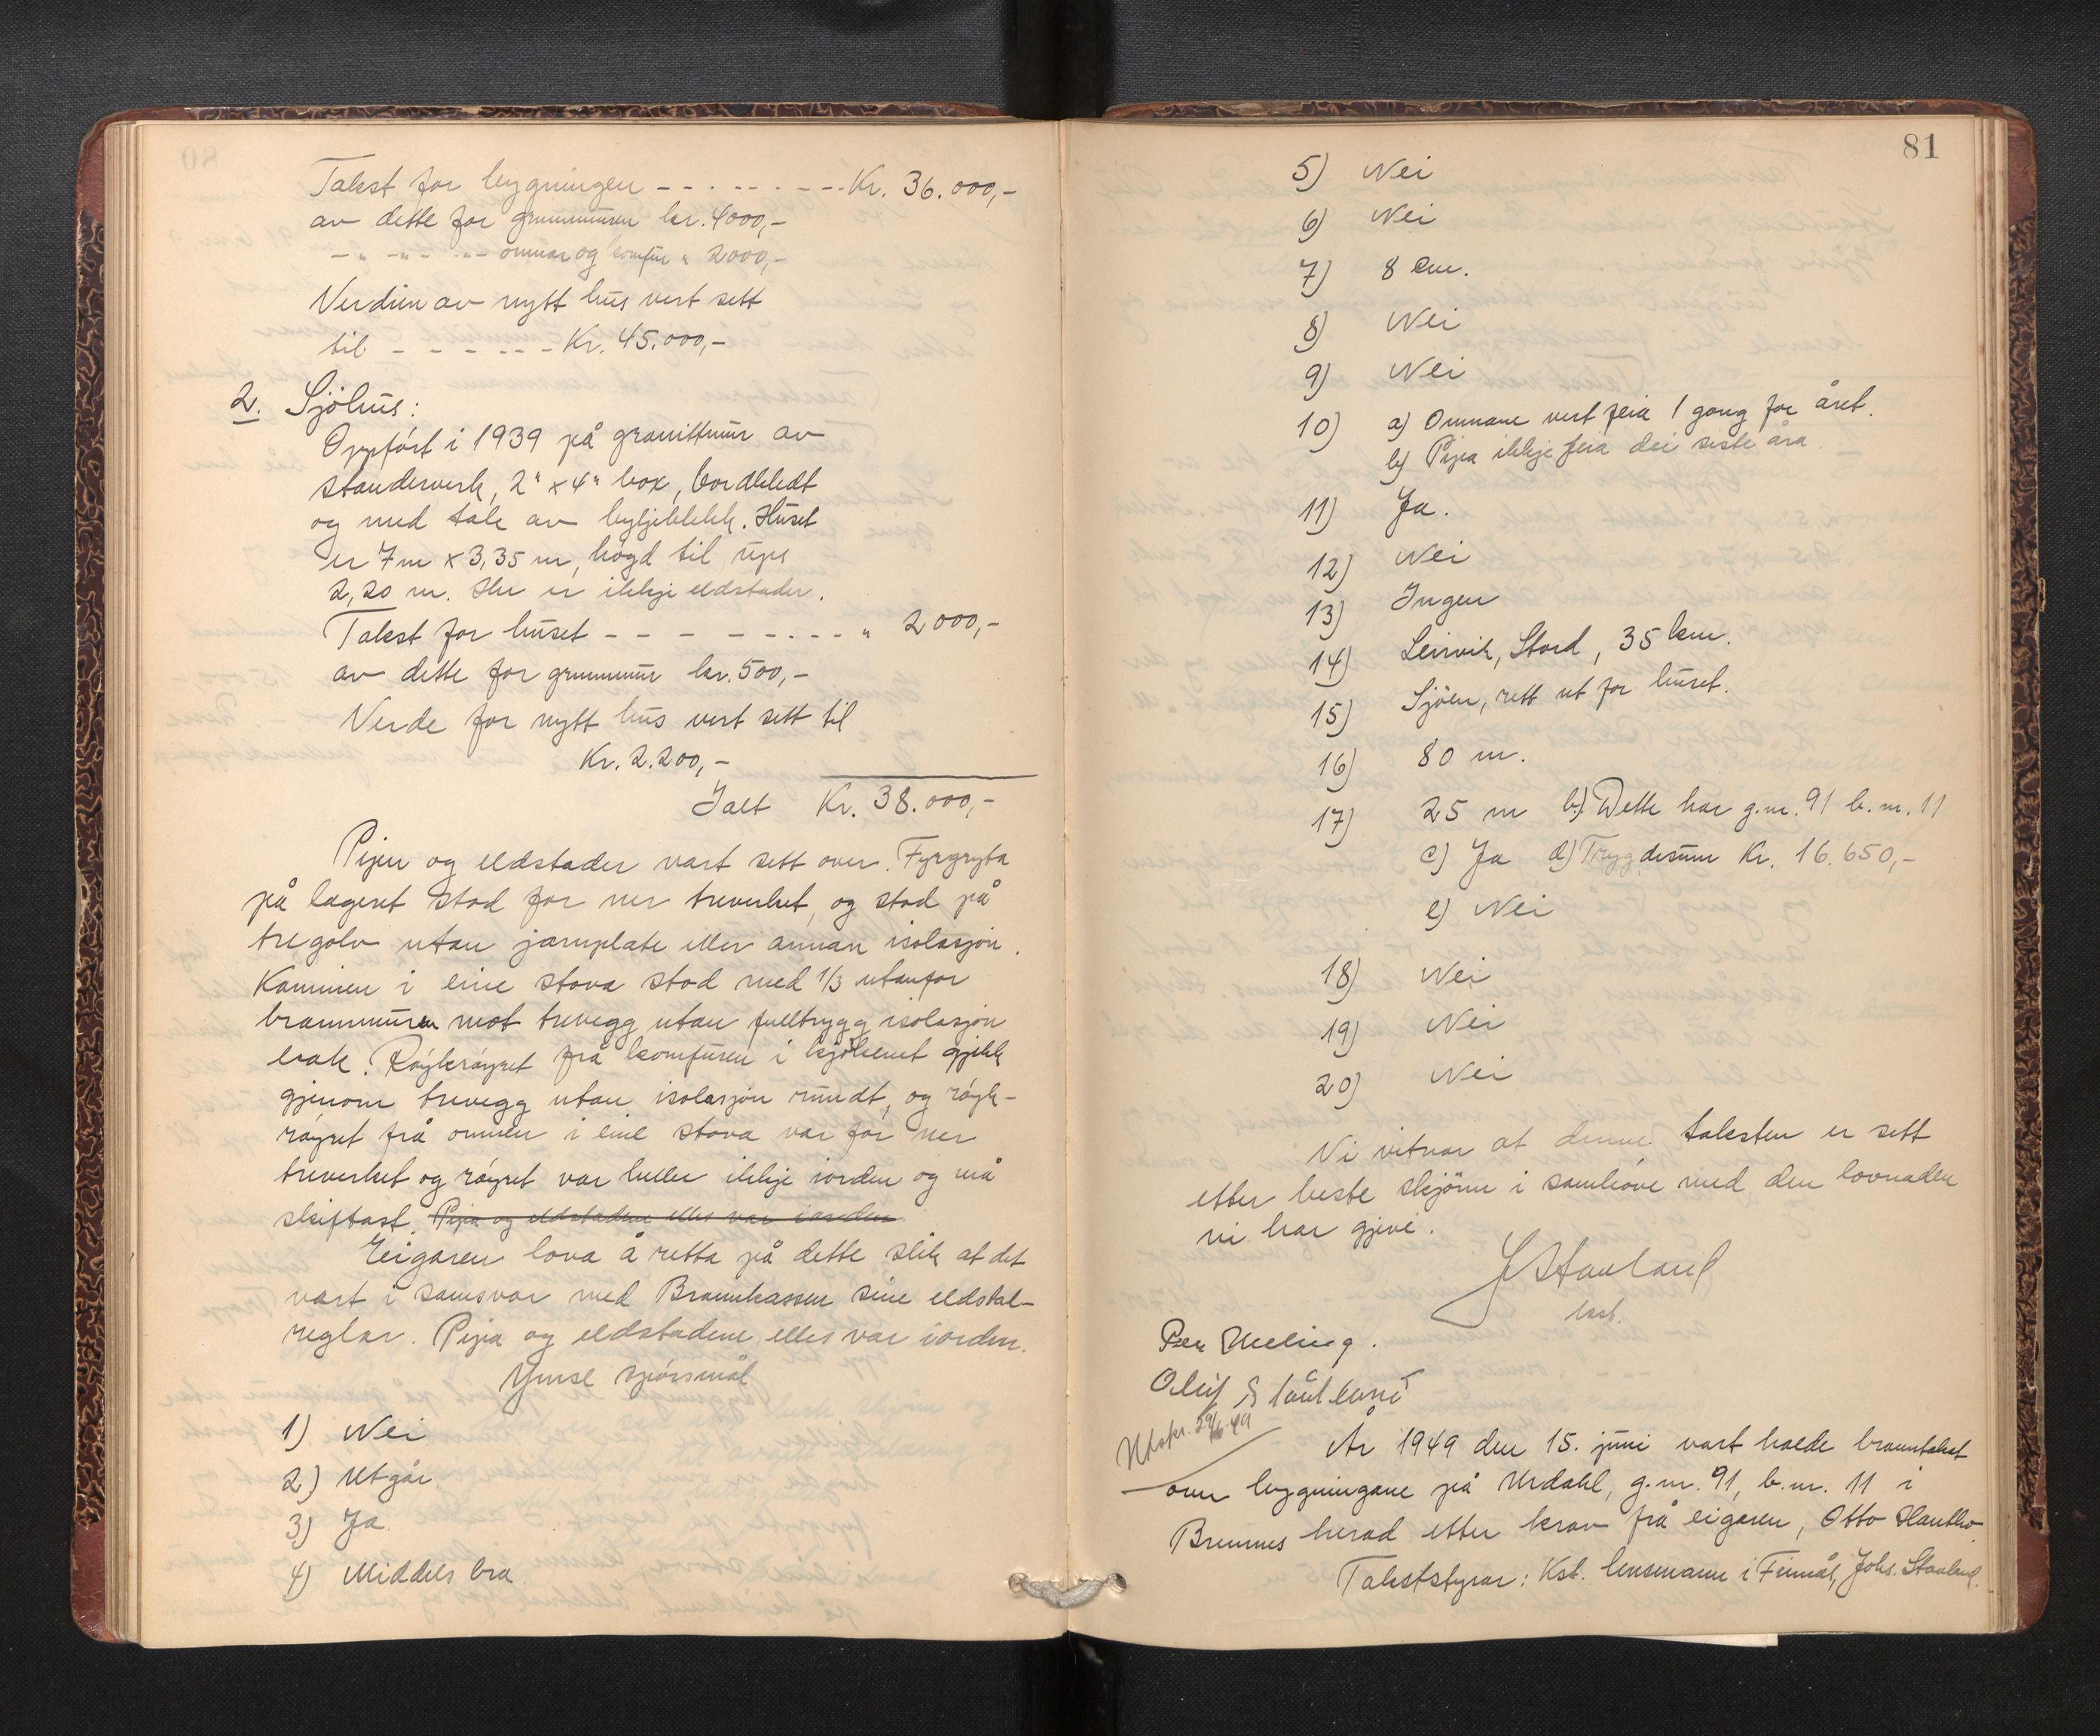 Takst for bygningen - - - - - - - - Kr. 36.000,-
av dette for grunnmuren kr. 4000,-
- " - " - " - omnar og komfur " 2000,-
Verdien av nytt hus vert sett
til - - - - - - Kr. 45.000,-
2. Sjöhus:
Oppfört i 1939 på granittmur av
standerverk, 2" x 4" box, bordkledt
og med tak av bylgjeblekk. Huset
er 7 m x 3,35 m, högd til ups
2,20 m. Her er ikkje eldstader.
Takst for huset - - - - - - - - - " 2000,-
av dette for grunnmur kr. 500,-
Verde for nytt hus vert sett til
Kr. 2.200,-
Ialt Kr. 38.000,-
Pipen og eldstader vart sett over. Fyrgryta
på lageret stod for ner treverket, og stod på
tregolv utan jarnplate eller annan isolasjon.
Kaminen i eine stova stod med 1/3 utanfor
brannmuren mot trevegg utan fulltrygg isolasjon
bak. Röykröyret frå komfuren i kjökenet gjekk
gjenom trevegg utan isolasjon rundt, og röyk-
röyret frå omnen i eine stova var for ner
treverket og röyret var heller ikkje iorden og må
skiftast. Pipa og eldstadene elles var iorden.
Eigaren lova å retta på dette slik at det
vart i samsvar med Brannkassen sine eldstal-
reglar. Pipa og eldstadene elles var iorden.
Ymse spörsmål
1) Nei
2) Utgår
3) Ja
4) Middels bra
81
5) Nei
6) Nei
7) 8 cm.
8) Nei
9) Nei
10) a) Omnane vert feia 1 gong for året.
b) Pipa ikkje feia dei siste åra
11) Ja.
12) Nei
13) Ingen
14) Leirvik, Stord, 35 km.
15) Sjöen, rett ut for huset.
16) 80 m.
17) 25 m b) Dette har g.nr. 91 b.nr. 11
c) Ja d) Trygdesum Kr. 16.650,-
e) Nei
18) Nei
19) Nei
20) Nei
Vi vitnar at denne taksten er sett
etter beste skjönn i samhöve med den lovnaden
vi har gjevi.
J Stauland
kst.
Per Meling.
Oluf Stautland
Utskr. 29/6-49
År 1949 den 15. juni vart halde branntakst
over bygningane på Urdahl, g.nr. 91, b.nr. 11 i
Bremnes herad etter krav frå eigaren, Otto
Takststyrar: Kst. lensmann i Finnås, Johs. Stauland.